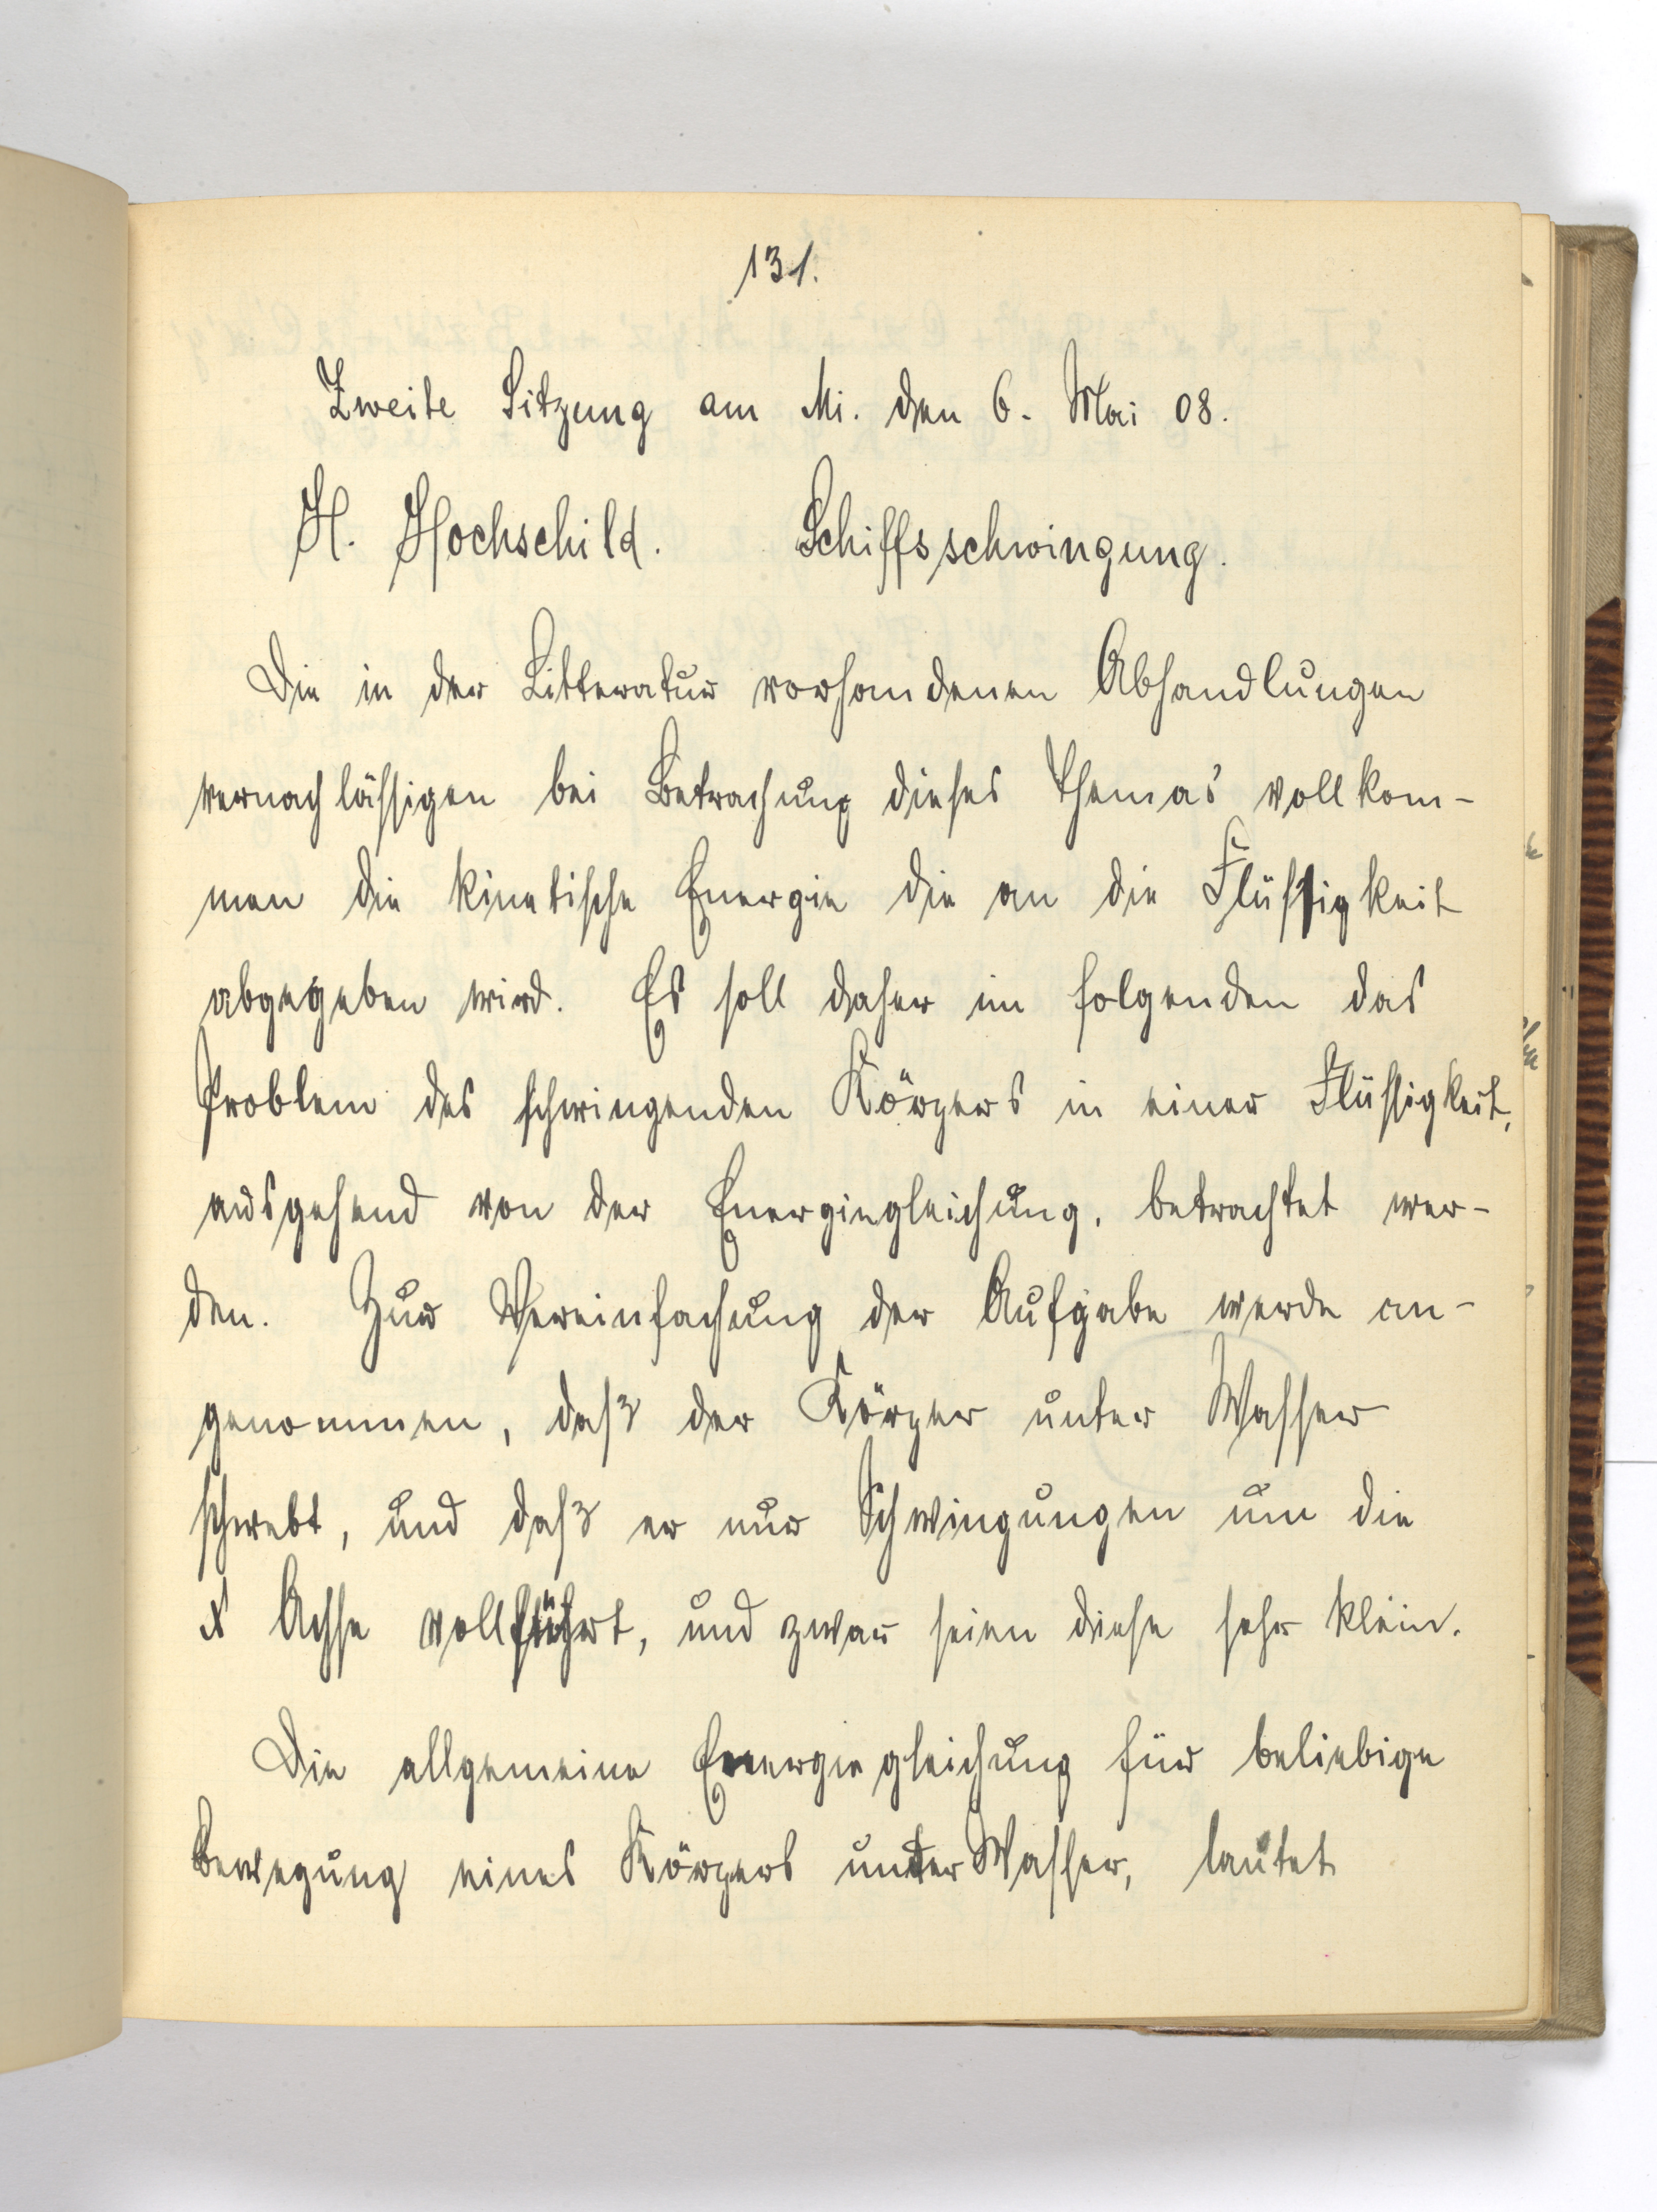 131.
Zweite Sitzung am Mi. den 6. Mai 08.
H. Hochschild. Schiffsschwingung.
Die in der Litteratur vorhandenen Abhandlungen
vernachlässigen bei Betrachung dieses Themas vollkom-
men die kinetische Energie die an die Flüssigkeit
abgegeben wird. Es soll daher im folgenden das
Problem des schwingenden Körpers in einer Flüssigkeit,
ausgehend von der Energiegleichung, betrachtet wer-
den. Zur Vereinfachung der Aufgabe werde an-
genommen, dass der Körper unter Wasser
schwebt, und dass er nur Schwingungen um die
x Achse vollführt, und zwar seien diese sehr klein.
Die allgemeine Energiegleichung für beliebige
Bewegung eines Körpers unter Wasser, lautet